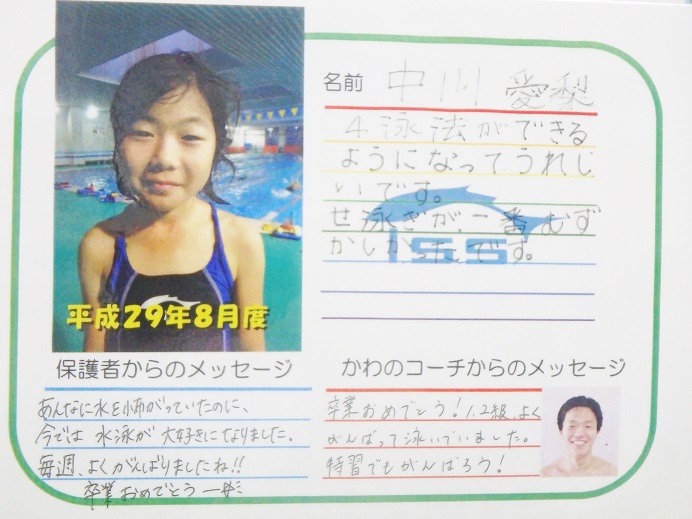 名前 中川 愛梨
4泳法ができる
ようになって、うれし
いです。
せ泳ぎが、一番むず
かしかったです。
iSS
平成29年8月度
保護者からのメッセージ
あんなに水を怖がっていたのに、
今では 水泳が 大好きになりました。
毎週、よくがんばりましたね!!
卒業おめでとう
かわのコーチからのメッセージ
卒業おめでとう!1.2級、よく
がんばって泳いでいました。
特習でもがんばろう!